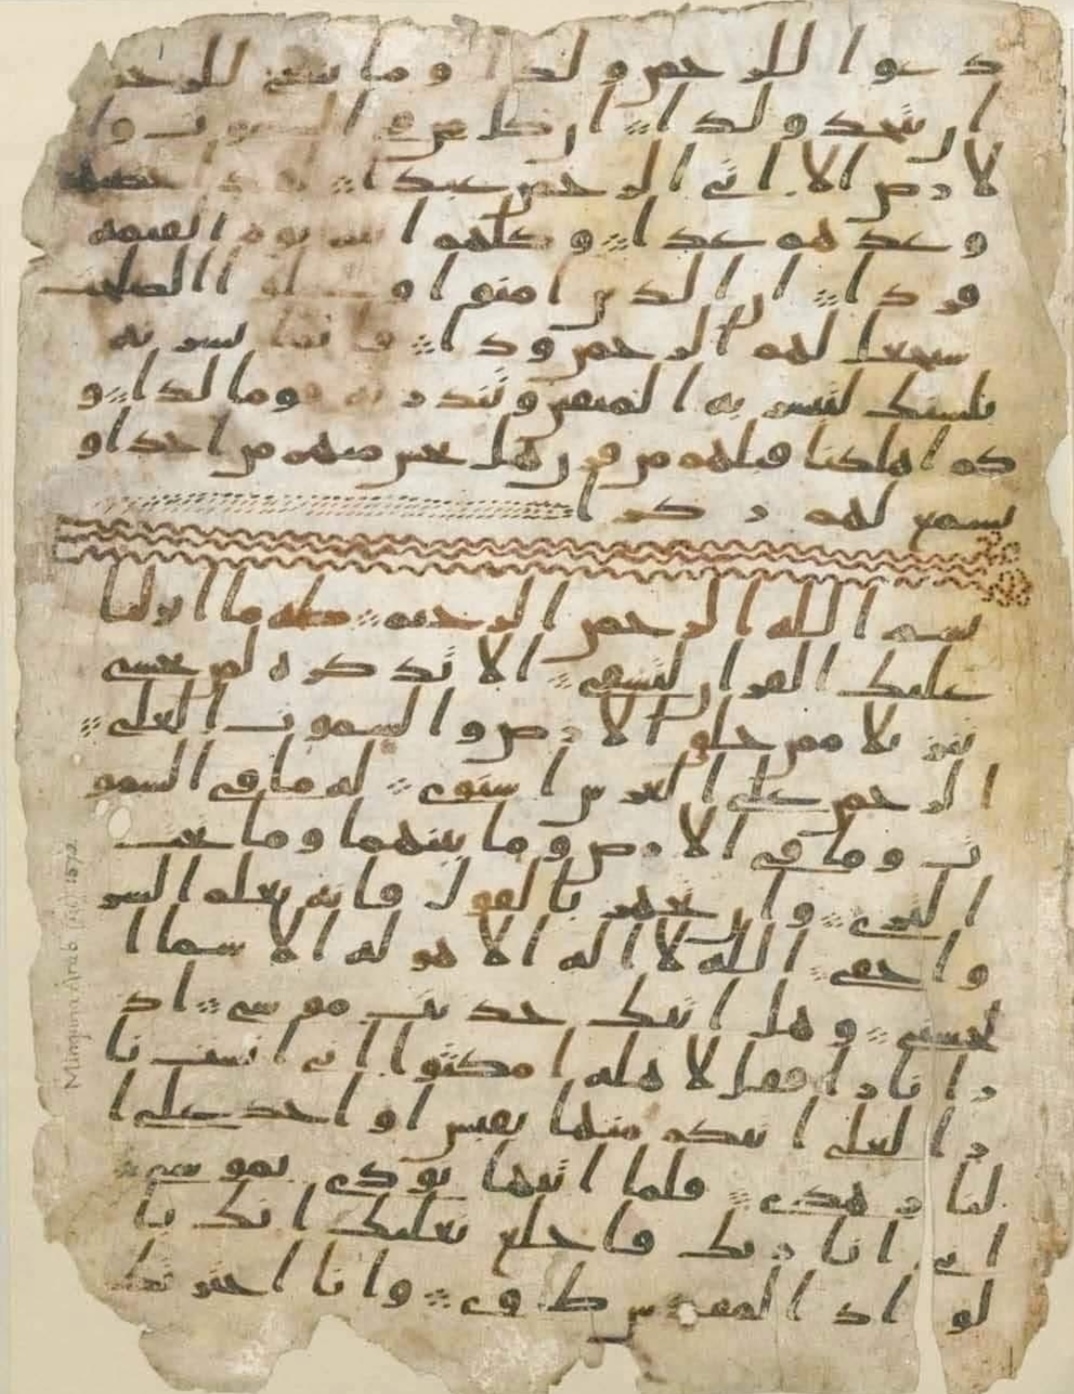 دعوا للرحمن ولدا وما ينبغي للرحمن
ان يتخذ ولدا ان كل من في السموت وا
لارض الا اتي الرحمن عبدا لقد احصهم
وعدهم عدا وكلهم اتيه يوم القيمه
فردا ان الذين امنوا وعملوا الصلحت
سيجعل لهم الرحمن ودا فانما يسرنه
بلسنك لتبشر به المتقين وتنذر به قوما لدا و
كم اهلكنا قبلهم من قرن هل تحس منهم من احد او
تسمع لهم ركزا
بسم الله الرحمن الرحيم طه ما انزلنا
عليك القران لتشقى الا تذكره لمن يخشى
تنزيلا ممن خلق الارض والسموت العلى
الرحمن على العرش استوى له ما في السمو
ت وما في الارض وما بينهما وما تحت
الثرى وان تجهر بالقول فانه يعلم السر
واخفى الله لا اله الا هو له الاسما ا
لحسنى وهل اتيك حديث موسى اذ
را نارا فقل لاهله امكثوا اني انست نا
را لعلي اتيكم منها بقبس او اجد على ا
لنار هدى فلما اتيها نودي يموسى
اني انا ربك فاخلع نعليك انك با
لواد المقدس طوى وانا اخترتك
Mingana Arab (Isl) 1572